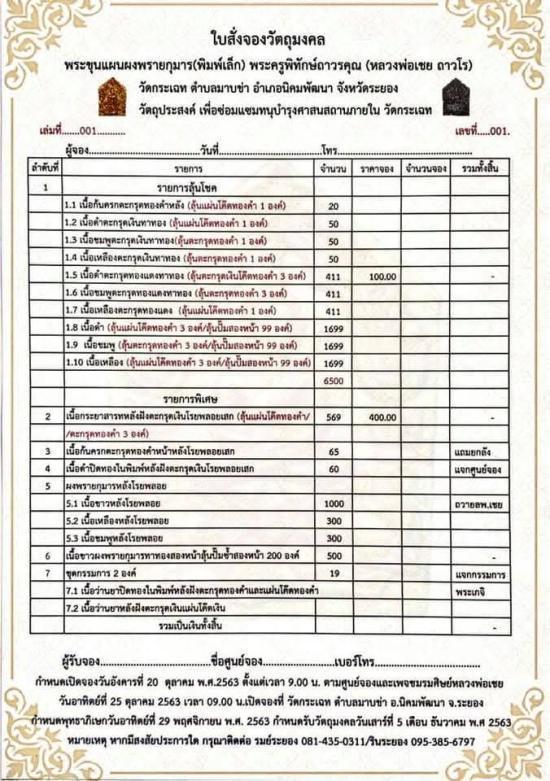 ใบสั่งจองวัตถุมงคล
พระขุนแผนผงพรายกุมาร(พิมพ์เล็ก) พระครูพิทักษ์ถาวรคุณ (หลวงพ่อเชย ถาวโร)
วัดกระเฉท ตำบลมาบข่า อำเภอนิคมพัฒนา จังหวัดระยอง
วัตถุประสงค์ เพื่อซ่อมแซมทนุบำรุงศาสนสถานภายใน วัดกระเฉท
เล่มที่.......001........... เลขที่.....001.
ผู้จอง........................................วันที่.....................................โทร.............................................
ลำดับที่ รายการ จำนวน ราคาจอง จำนวนจอง รวมทั้งสิ้น
1 รายการลุ้นโชค
1.1 เนื้อก้นครกตะกรุดทองคำหลัง (ลุ้นแผ่นโค๊ตทองคำ 1 องค์) 20
1.2 เนื้อดำตะกรุดเงินทาทอง (ลุ้นตะกรุดทองคำ 1 องค์) 50
1.3 เนื้อชมพูตะกรุดเงินทาทอง(ลุ้นตะกรุดทองคำ 1 องค์) 50
1.4 เนื้อเหลืองตะกรุดเงินทาทอง (ลุ้นตะกรุดทองคำ 1 องค์) 50
1.5 เนื้อดำตะกรุดทองแดงทาทอง (ลุ้นตะกรุดเงินโค๊ตทองคำ 3 องค์) 411 100.00 -
1.6 เนื้อชมพูตะกรุดทองแดงทาทอง (ลุ้นตะกรุดทองคำ 3 องค์) 411
1.7 เนื้อเหลืองตะกรุดทองแดง (ลุ้นแผ่นโค๊ตทองคำ 1 องค์) 411
1.8 เนื้อดำ (ลุ้นแผ่นโค๊ตทองคำ 3 องค์/ลุ้นปั๊มสองหน้า 99 องค์) 1699
1.9 เนื้อชมพู (ลุ้นตะกรุดทองคำ 3 องค์/ลุ้นปั๊มสองหน้า 99 องค์) 1699
1.10 เนื้อเหลือง (ลุ้นแผ่นโค๊ตทองคำ 3 องค์/ลุ้นปั๊มสองหน้า 99 องค์) 1699
6500
รายการพิเศษ
2 เนื้อกระยาสารทหลังฝังตะกรุดเงินโรยพลอยเสก (ลุ้นแผ่นโค๊ตทองคำ/ 569 400.00 -
/ตะกรุดทองคำ 3 องค์)
3 เนื้อก้นครกตะกรุดทองคำหน้าหลังโรยพลอยเสก 65 แถมยกลัง
4 เนื้อดำปิดทองในพิมพ์หลังฝังตะกรุดเงินโรยพลอยเสก 60 แจกศูนย์จอง
5 ผงพรายกุมารหลังโรยพลอย
5.1 เนื้อขาวหลังโรยพลอย 1000 ถวายลพ.เชย
5.2 เนื้อเหลืองหลังโรยพลอย 300
5.3 เนื้อชมพูหลังโรยพลอย 300
6 เนื้อขาวผงพรายกุมารทาทองสองหน้าลุ้นปั๊มซ้ำสองหน้า 200 องค์ 500 -
7 ชุดกรรมการ 2 องค์ 19 แจกกรรมการ
7.1 เนื้อว่านยาปิดทองในพิมพ์หลังฝังตะกรุดทองคำและแผ่นโค๊ตทองคำ พระเกจิ
7.2 เนื้อว่านยาหลังฝังตะกรุดเงินแผ่นโค๊ตเงิน
รวมเป็นเงินทั้งสิ้น -
ผู้รับจอง..............................ชื่อศูนย์จอง..............................เบอร์โทร..............................
กำหนดเปิดจองวันอังคารที่ 20 ตุลาคม พ.ศ.2563 ตั้งแต่เวลา 9.00 น. ตามศูนย์จองและเพจชมรมศิษย์หลวงพ่อเชย
วันอาทิตย์ที่ 25 ตุลาคม 2563 เวลา 09.00 น.เปิดจองที่ วัดกระเฉท ตำบลมาบข่า อ.นิคมพัฒนา จ.ระยอง
กำหนดพุทธาภิเษกวันอาทิตย์ที่ 29 พฤศจิกายน พ.ศ. 2563 กำหนดรับวัตถุมงคลวันเสาร์ที่ 5 เดือน ธันวาคม พ.ศ 2563
หมายเหตุ หากมีสงสัยประการใด กรุณาติดต่อ รมย์ระยอง 081-435-0311/รินระยอง 095-385-6797